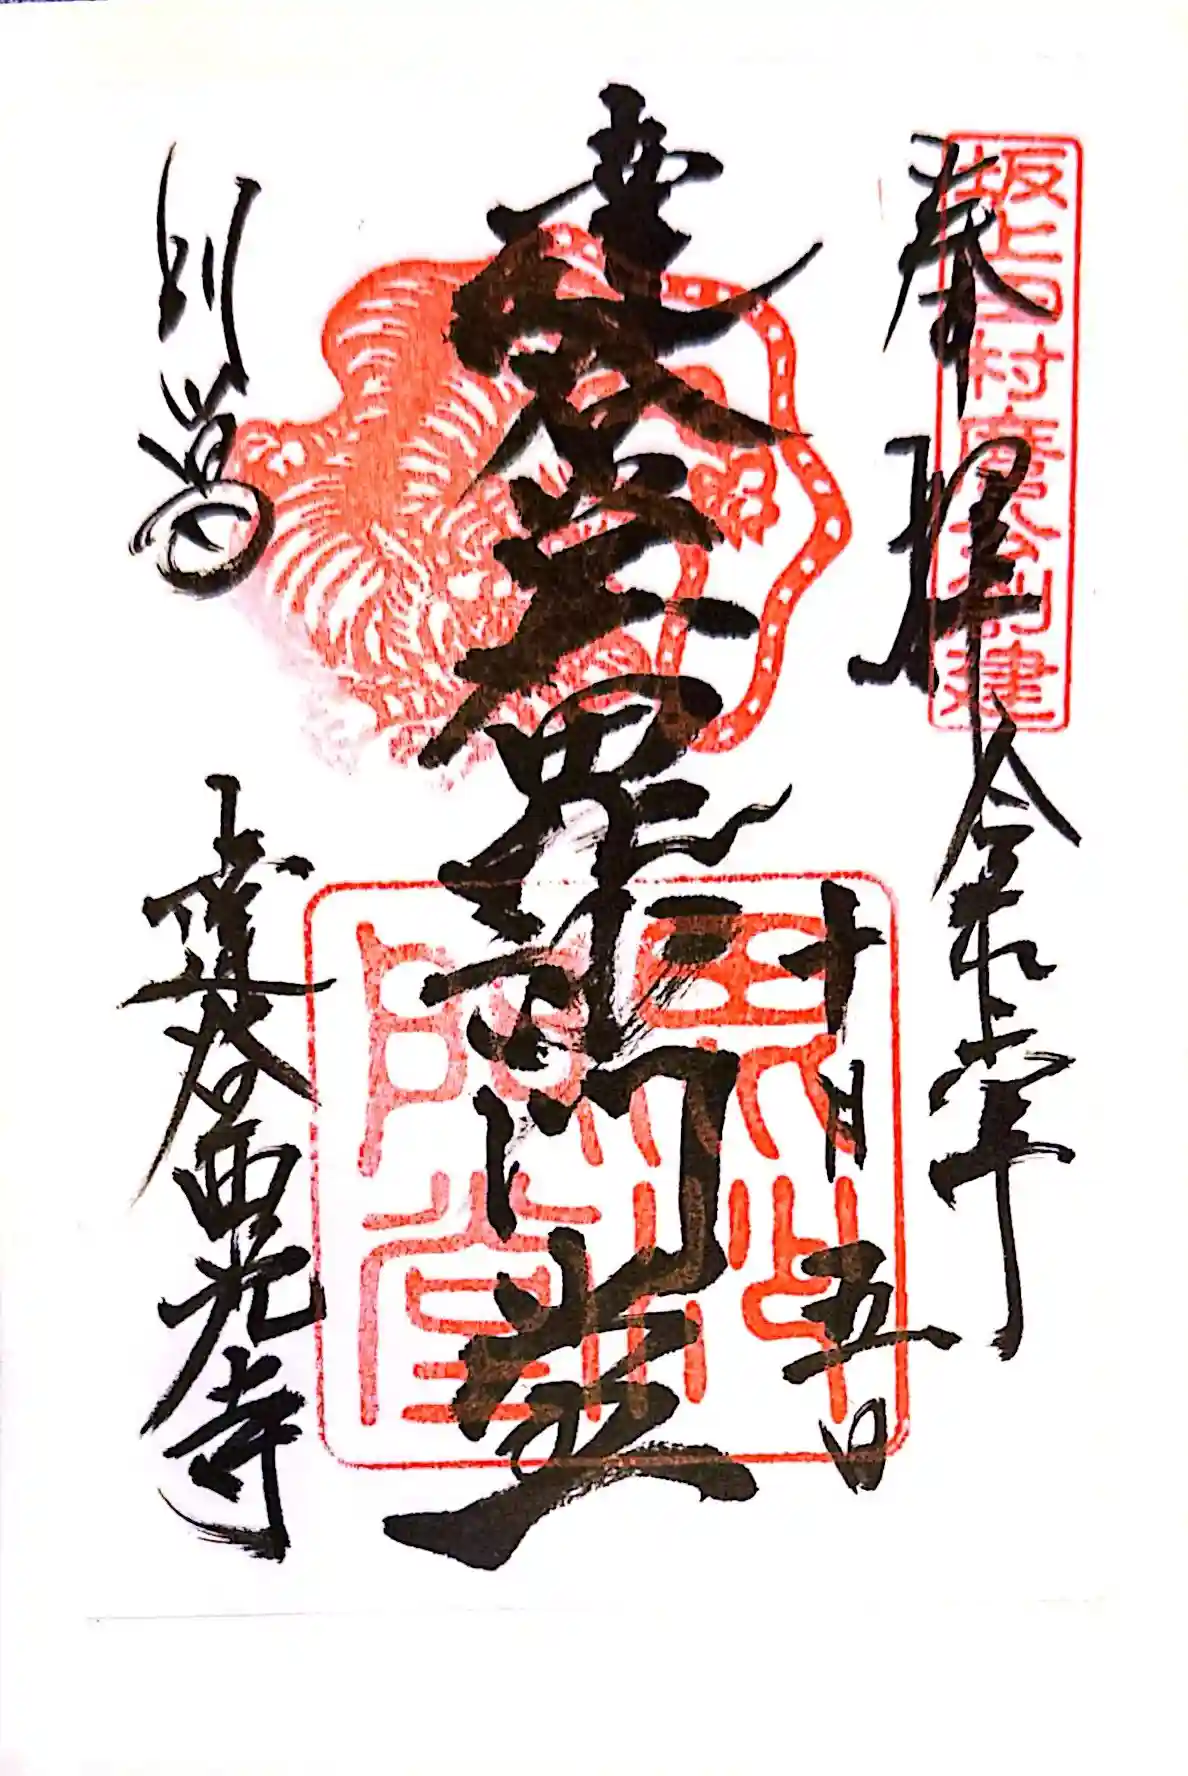 坂上田村麿公創建
奉拝
令和六年
十月五日
達谷毘沙門堂
毘沙門堂
別當
達谷西光寺